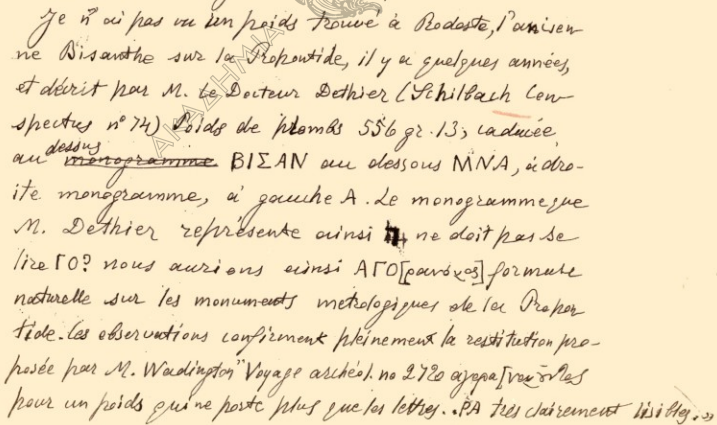 Je n'ai pas vu un poids trouvé à Rodosto, l'ancien-
ne Bisanthe sur la Propontide, il y a quelques années,
et décrit par M. le Docteur Dethier (Schilbach Con-
spectus nº 74) Poids de plombs 556 gr. 13; caducée
au dessus monogramme ΒΙΣΑΝ au dessous ΜΝΑ, à dro-
ite monogramme, à gauche Α. Le monogramme que
M. Dethier représente ainsi ne doit pas se
lire ΓΟ? nous aurions ainsi ΑΓΟ[ρανόμος] formule
naturelle sur les monuments metrologiques de la Propon
tide. les observations confirment pleinement la restitution pro-
posée par M. Wadington" Voyage archéol. no 2720 αγορα[νομοῦντος
pour un poids qui ne porte plus que les lettres. .ΡΑ très clairement lisibles. »
ΑΚΑΔΗΜΙΑ